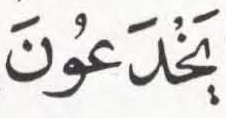 يَخْدَعُونَ